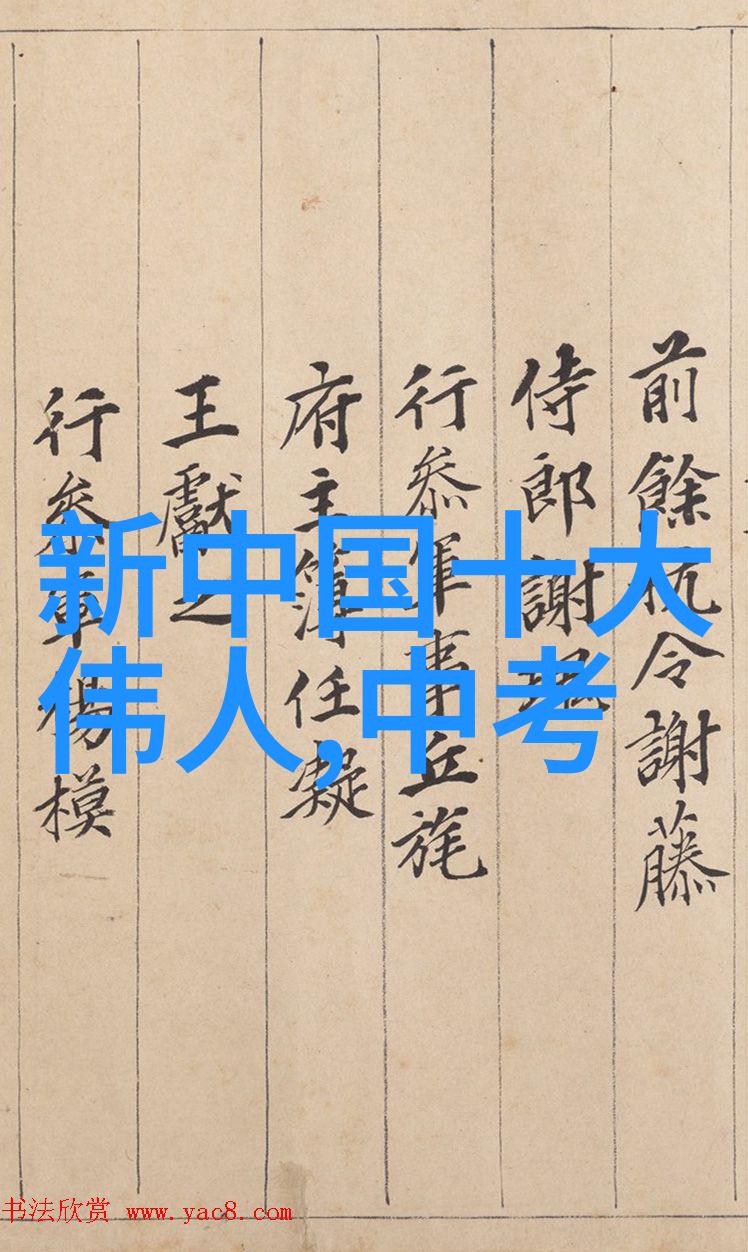 新中国十大
伟人,中考
前餘杭令謝藤
侍郎謝
行叅軍事丘旄
府主簿任凝
王獻之
行叅軍楊模
书法欣赏 www.yac8.com